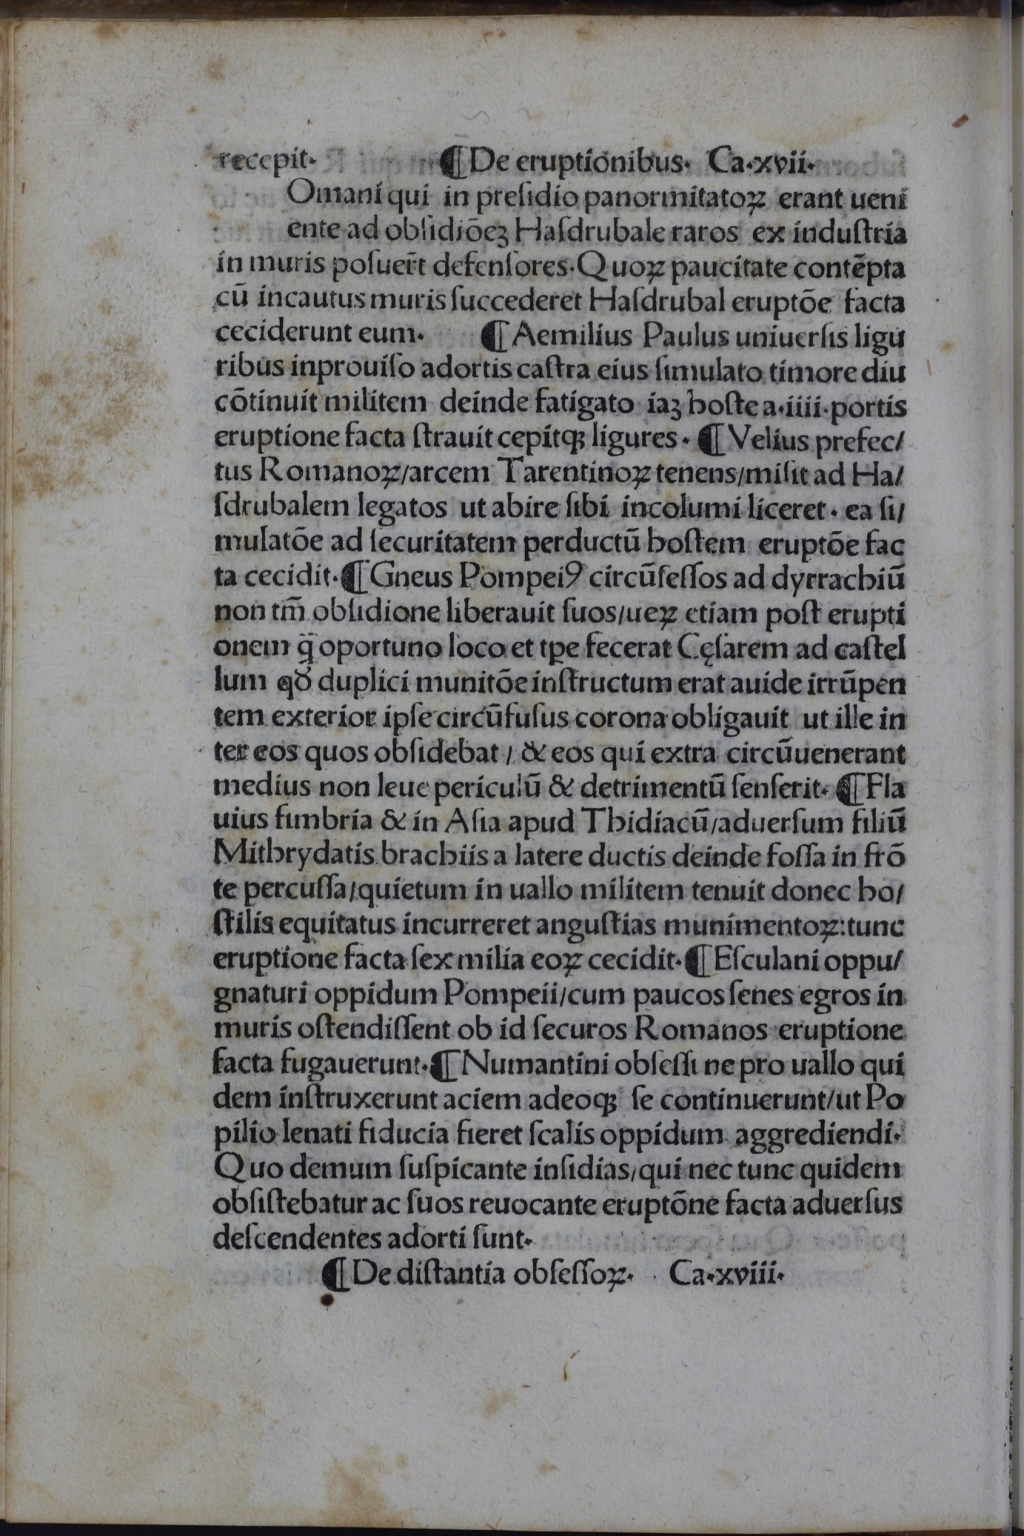 recepit. ¶De eruptionibus. Ca.xvii.
Omani qui in preſidio panormitatoꝝ erant ueni
ente ad obſidiōeꝫ Haſdrubale raros ex induſtria
in muris poſuer̄t defenſores.Quoꝝ paucitate contēpta
cū incautus muris ſuccederet Haſdrubal eruptōe facta
ceciderunt eum. ¶Aemilius Paulus uniuerſis ligu
ribus inprouiſo adortis caſtra eius ſimulato timore diu
cōtinuit militem deinde fatigato iaꝫ hoſte a.iiii.portis
eruptione facta ſtrauit cepitqꝫ ligures. ¶Velius prefec/
tus Romanoꝝ/arcem Tarentinoꝝ tenens/miſit ad Ha/
ſdrubalem legatos ut abire ſibi incolumi liceret. ea ſi/
mulatōe ad ſecuritatem perductū hoſtem eruptōe fac
ta cecidit.¶Gneus Pompeiꝰ circūſeſſos ad dyrrachiū
non tm̄ obſidione liberauit ſuos/ueꝝ etiam poſt erupti
onem q̄ oportuno loco et tꝑe fecerat Cęſarem ad caſtel
lum qđ duplici munitōe inſtructum erat auide irrūpen
tem exterior ipſe circūfuſus corona obligauit ut ille in
ter eos quos obſidebat / & eos qui extra circūuenerant
medius non leue periculū & detrimentū ſenſerit. ¶Fla
uius fimbria & in Aſia apud Thidiacū/aduerſum filiū
Mithrydatis brachiis a latere ductis deinde foſſa in frō
te percuſſa/quietum in uallo militem tenuit donec ho/
ſtilis equitatus incurreret anguſtias munimentoꝝ:tunc
eruptione facta ſex milia eoꝝ cecidit.¶Eſculani oppu/
gnaturi oppidum Pompeii/cum paucos ſenes egros in
muris oſtendiſſent ob id ſecuros Romanos eruptione
facta fugauerunt.¶Numantini obſeſſi ne pro uallo qui
dem inſtruxerunt aciem adeoqꝫ ſe continuerunt/ut Po
pilio lenati fiducia fieret ſcalis oppidum aggrediendi.
Quo demum ſuſpicante inſidias/qui nec tunc quidem
obſiſtebatur ac ſuos reuocante eruptōne facta aduerſus
deſcendentes adorti ſunt.
¶De diſtantia obſeſſoꝝ. Ca.xviii.